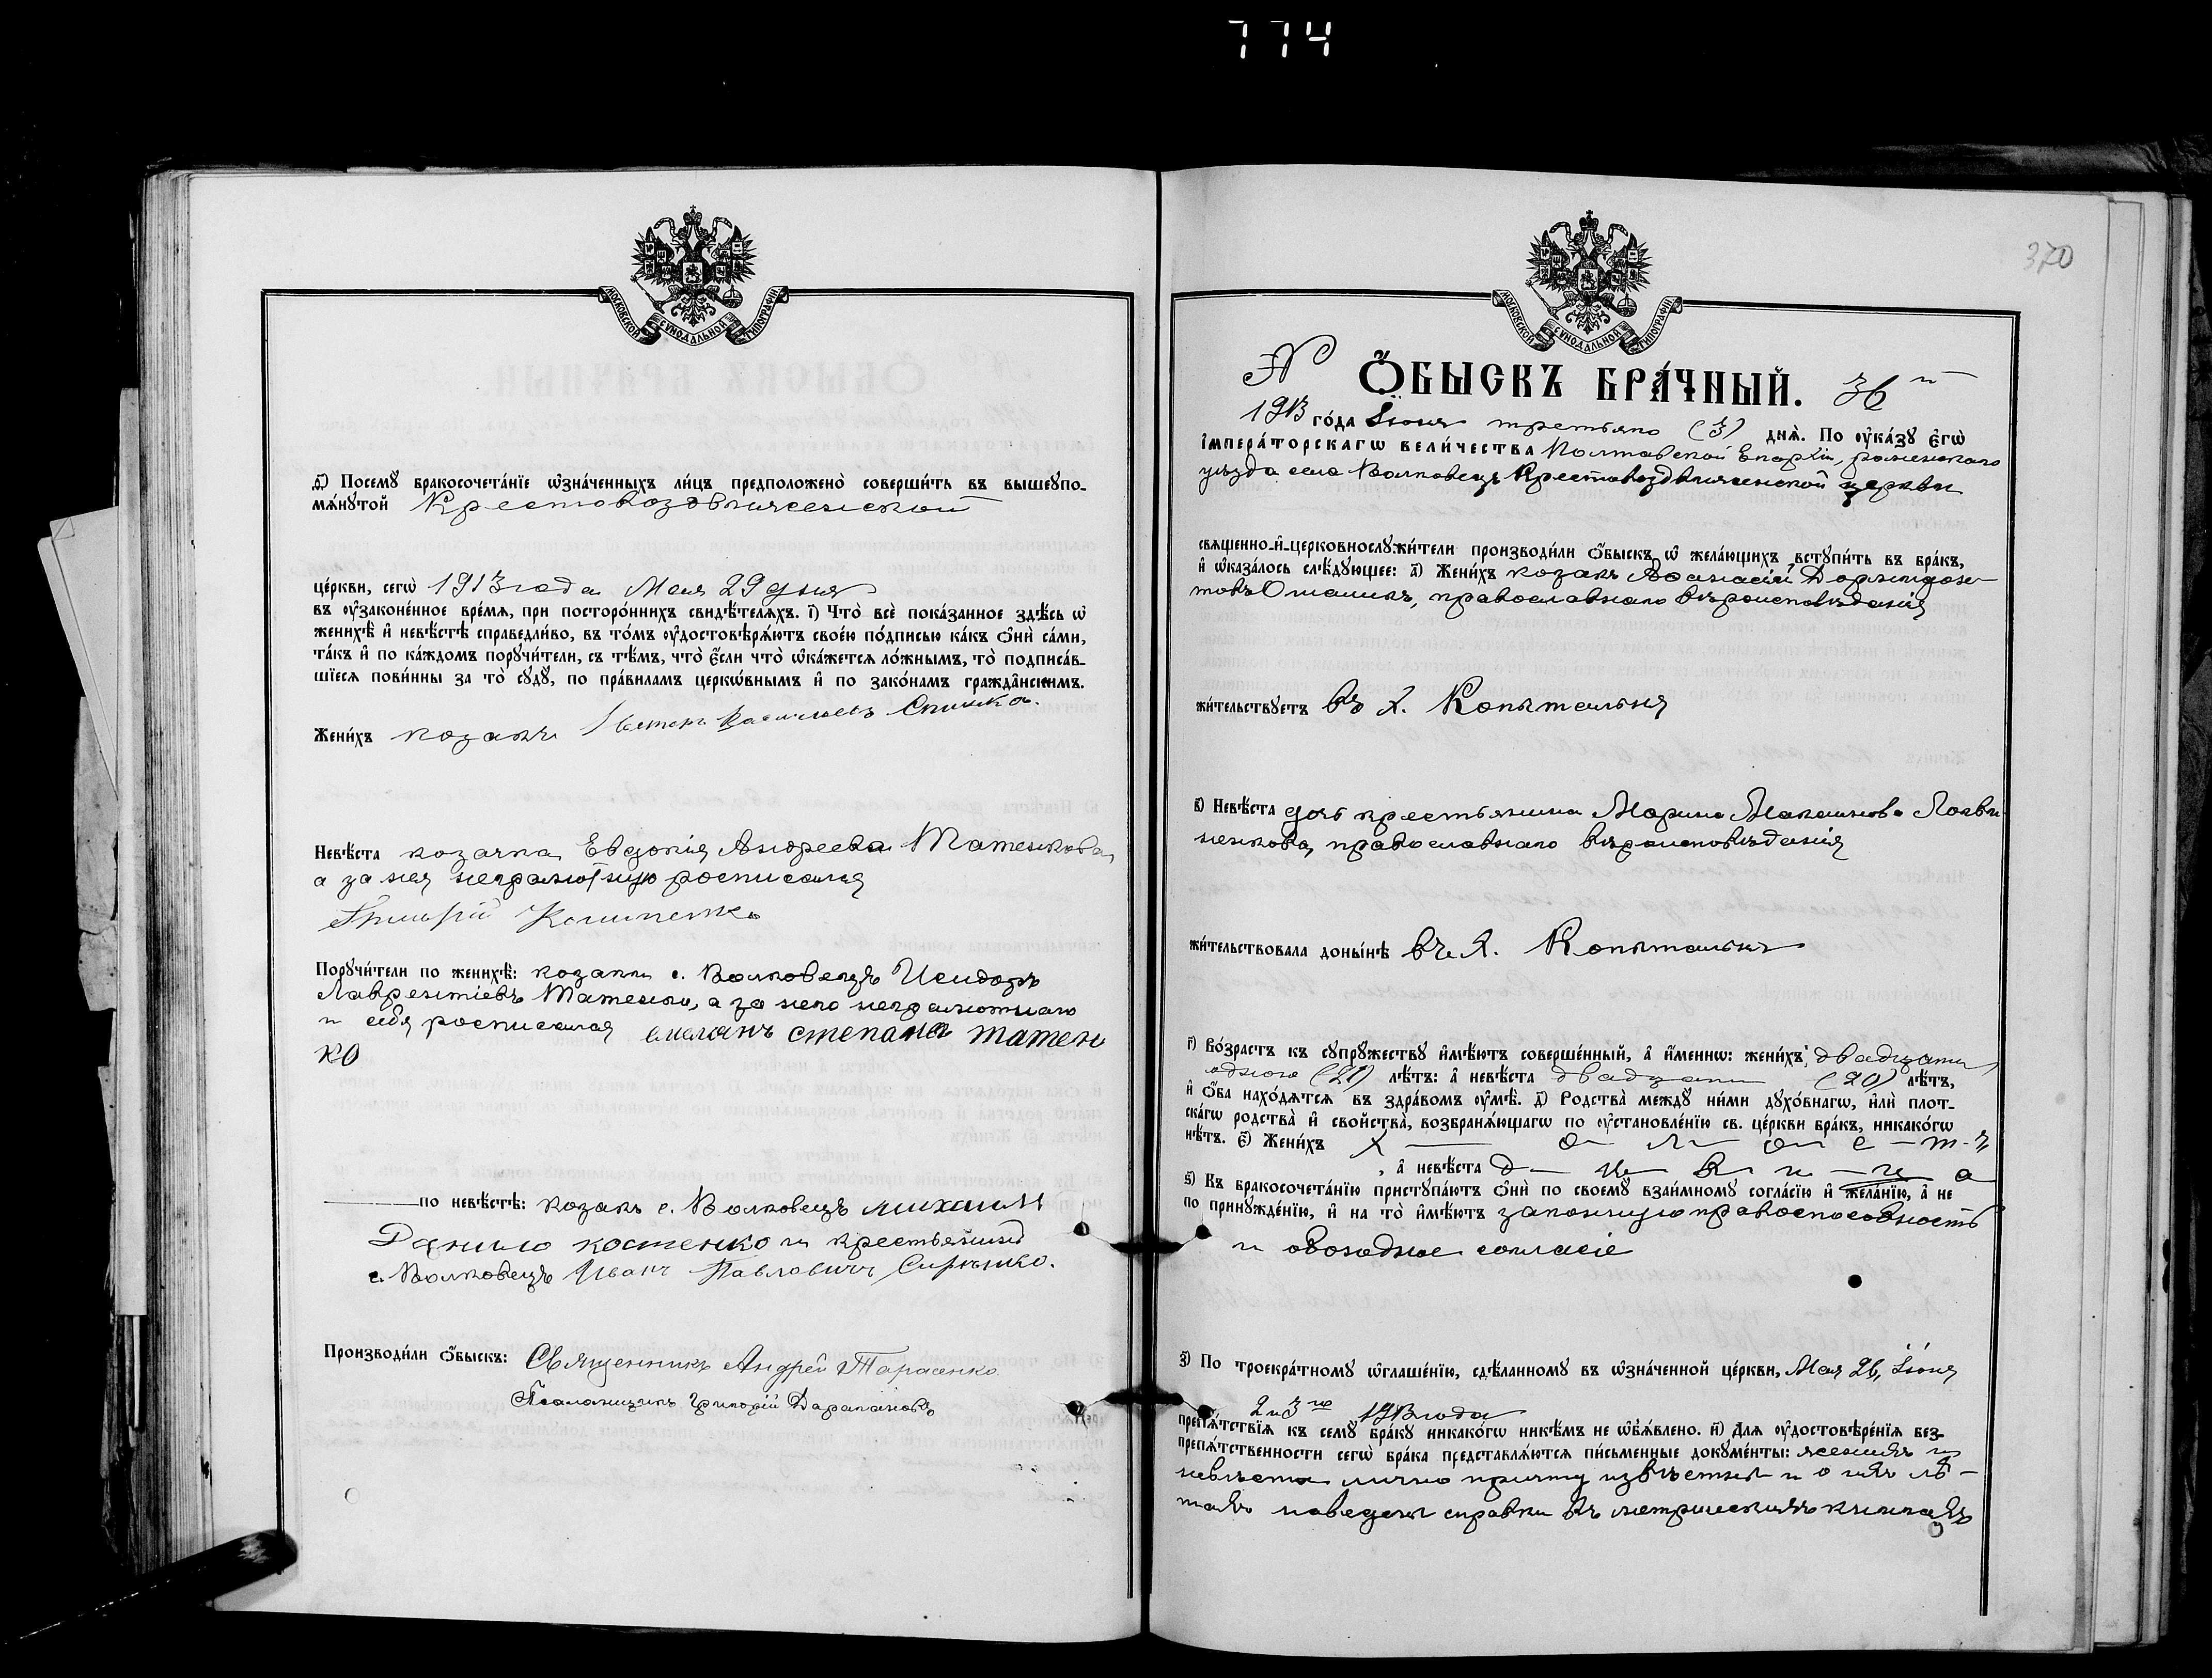 774
МОСКОВСКОЙ СѴНОДАЛЬНОЙ ТИПОГРАФІИ
Посемꙋ бракосочета́нїе ѡ҆зна́ченныхъ ли́цъ предположено̀ соверши́ть въ вышеꙋпо-
мѧ́нꙋтой Крестовоздвиженской
це́ркви, сегѡ̀ 1913 года Мая 29 дня
въ ᲂу҆законе́нное вре́мѧ, при посторо́ннихъ свидѣ́телѧхъ. і҃) Что̀ всѐ пока́занное здѣ́сь ѡ҆
женихѣ̀ и҆ невѣ́стѣ справедли́во, въ то́мъ ᲂу҆достовѣрѧ́ютъ свое́ю по́дписью ка́къ ѻ҆нѝ са́ми,
та́къ и҆ по ка́ждомъ порꙋчи́тели, съ тѣ́мъ, что̀ є҆́сли что̀ ѡ҆ка́жетсѧ ло́жнымъ, то̀ подписа́в-
шїесѧ пови́нны за то̀ сꙋдꙋ̀, по пра́виламъ церко́внымъ и҆ по зако́намъ гражда́нскимъ.
Жени́хъ козакъ Васильевъ Спинка.
Невѣ́ста козачка Евдокія Андреева Матенкова,
а за нея неграмотную росписался
Порꙋчи́тели по женихѣ̀: козаки с. Волковецъ Исидоръ
Лаврентіевъ Матенко, а за него неграмотнаго
и себя росписался степана матен
ко
по невѣ́стѣ: козакъ с. Волковецъ михаилъ
Данило костенко и крестьянинъ
с. Волковецъ Иванъ Павловичъ Сиренко.
Производи́ли ѻ҆́быскъ: Священникъ Андрей Тарасенко
Псаломщикъ Григорій
370
МОСКОВСКОЙ СѴНОДАЛЬНОЙ ТИПОГРАФІИ
N Ѻ҆́БЫСКЪ БРА́ЧНЫЙ. 36й
1913 го́да Іюня третьяго (3) днѧ̀. По ᲂу҆ка́зꙋ є҆гѡ̀
і҆мпера́торскагѡ вели́чества Полтавской Епархіи, роменскаго
уѣзда села Волковецъ Крестовоздвиженской церкви
свѧщенно-и҆-церковнослꙋжи́тели производи́ли ѻ҆́быскъ ѡ҆ жела́ющихъ встꙋпи́ть въ бра́къ,
и҆ ѡ҆каза́лось слѣ́дꙋющее: а҃) Жени́хъ козакъ Аѳанасій Дормидон-
товъ Ошашкъ, православнаго вѣроисповѣданія
жи́тельствꙋетъ въ х. Копытальня
в҃) Невѣ́ста дочь крестьянина Марина Максимова Логви
ненкова, православнаго вѣроисповѣданія
жи́тельствовала доны́нѣ въ х. Копытальнѣ
г҃) Во́зрастъ къ сꙋпрꙋ́жествꙋ и҆мѣ́ютъ соверше́нный, а҆ и҆́меннѡ: жени́хъ двадцати
одного (21) лѣ́тъ: а҆ невѣ́ста двадцати (20) лѣ́тъ,
и҆ ѻ҆́ба нахо́дѧтсѧ въ здра́вомъ ᲂу҆мѣ̀. д҃) Родства̀ междꙋ̀ ни́ми дꙋхо́внагѡ, и҆лѝ плот-
ска́гѡ родства̀ и҆ свойства̀, возбранѧ́ющагѡ по ᲂу҆становле́нїю св. це́ркви бра́къ, никако́гѡ
нѣ́тъ. є҃) Жени́хъ х — о — л — о — с — т - ъ
, а҆ невѣ́ста д — ѣ — в — и — ц — а
ѕ҃) Къ бракосочета́нїю пристꙋпа́ютъ ѻ҆нѝ по своемꙋ̀ взаи́мномꙋ согла́сїю и҆ жела́нїю, а҆ не
по принꙋжде́нїю, и҆ на то̀ и҆мѣ́ютъ законную правоспособность
и свободное согласіе
з҃) По троекра́тномꙋ ѡ҆глаше́нїю, сдѣ́ланномꙋ въ ѡ҆зна́ченной це́ркви, Мая 26, Іюня
2 и 3го 1913 года
препѧ́тствїѧ къ семꙋ̀ бра́кꙋ никако́гѡ никѣ́мъ не ѡ҆б̾ѧ́влено. и҃) Длѧ ᲂу҆достовѣре́нїѧ без-
препѧ́тственности сегѡ̀ бра́ка представлѧ́ютсѧ пи́сьменные докꙋме́нты: женихъ и
невѣста лично причту извѣстны и о ихъ лѣ-
тахъ наведены справки въ метрическихъ книгахъ